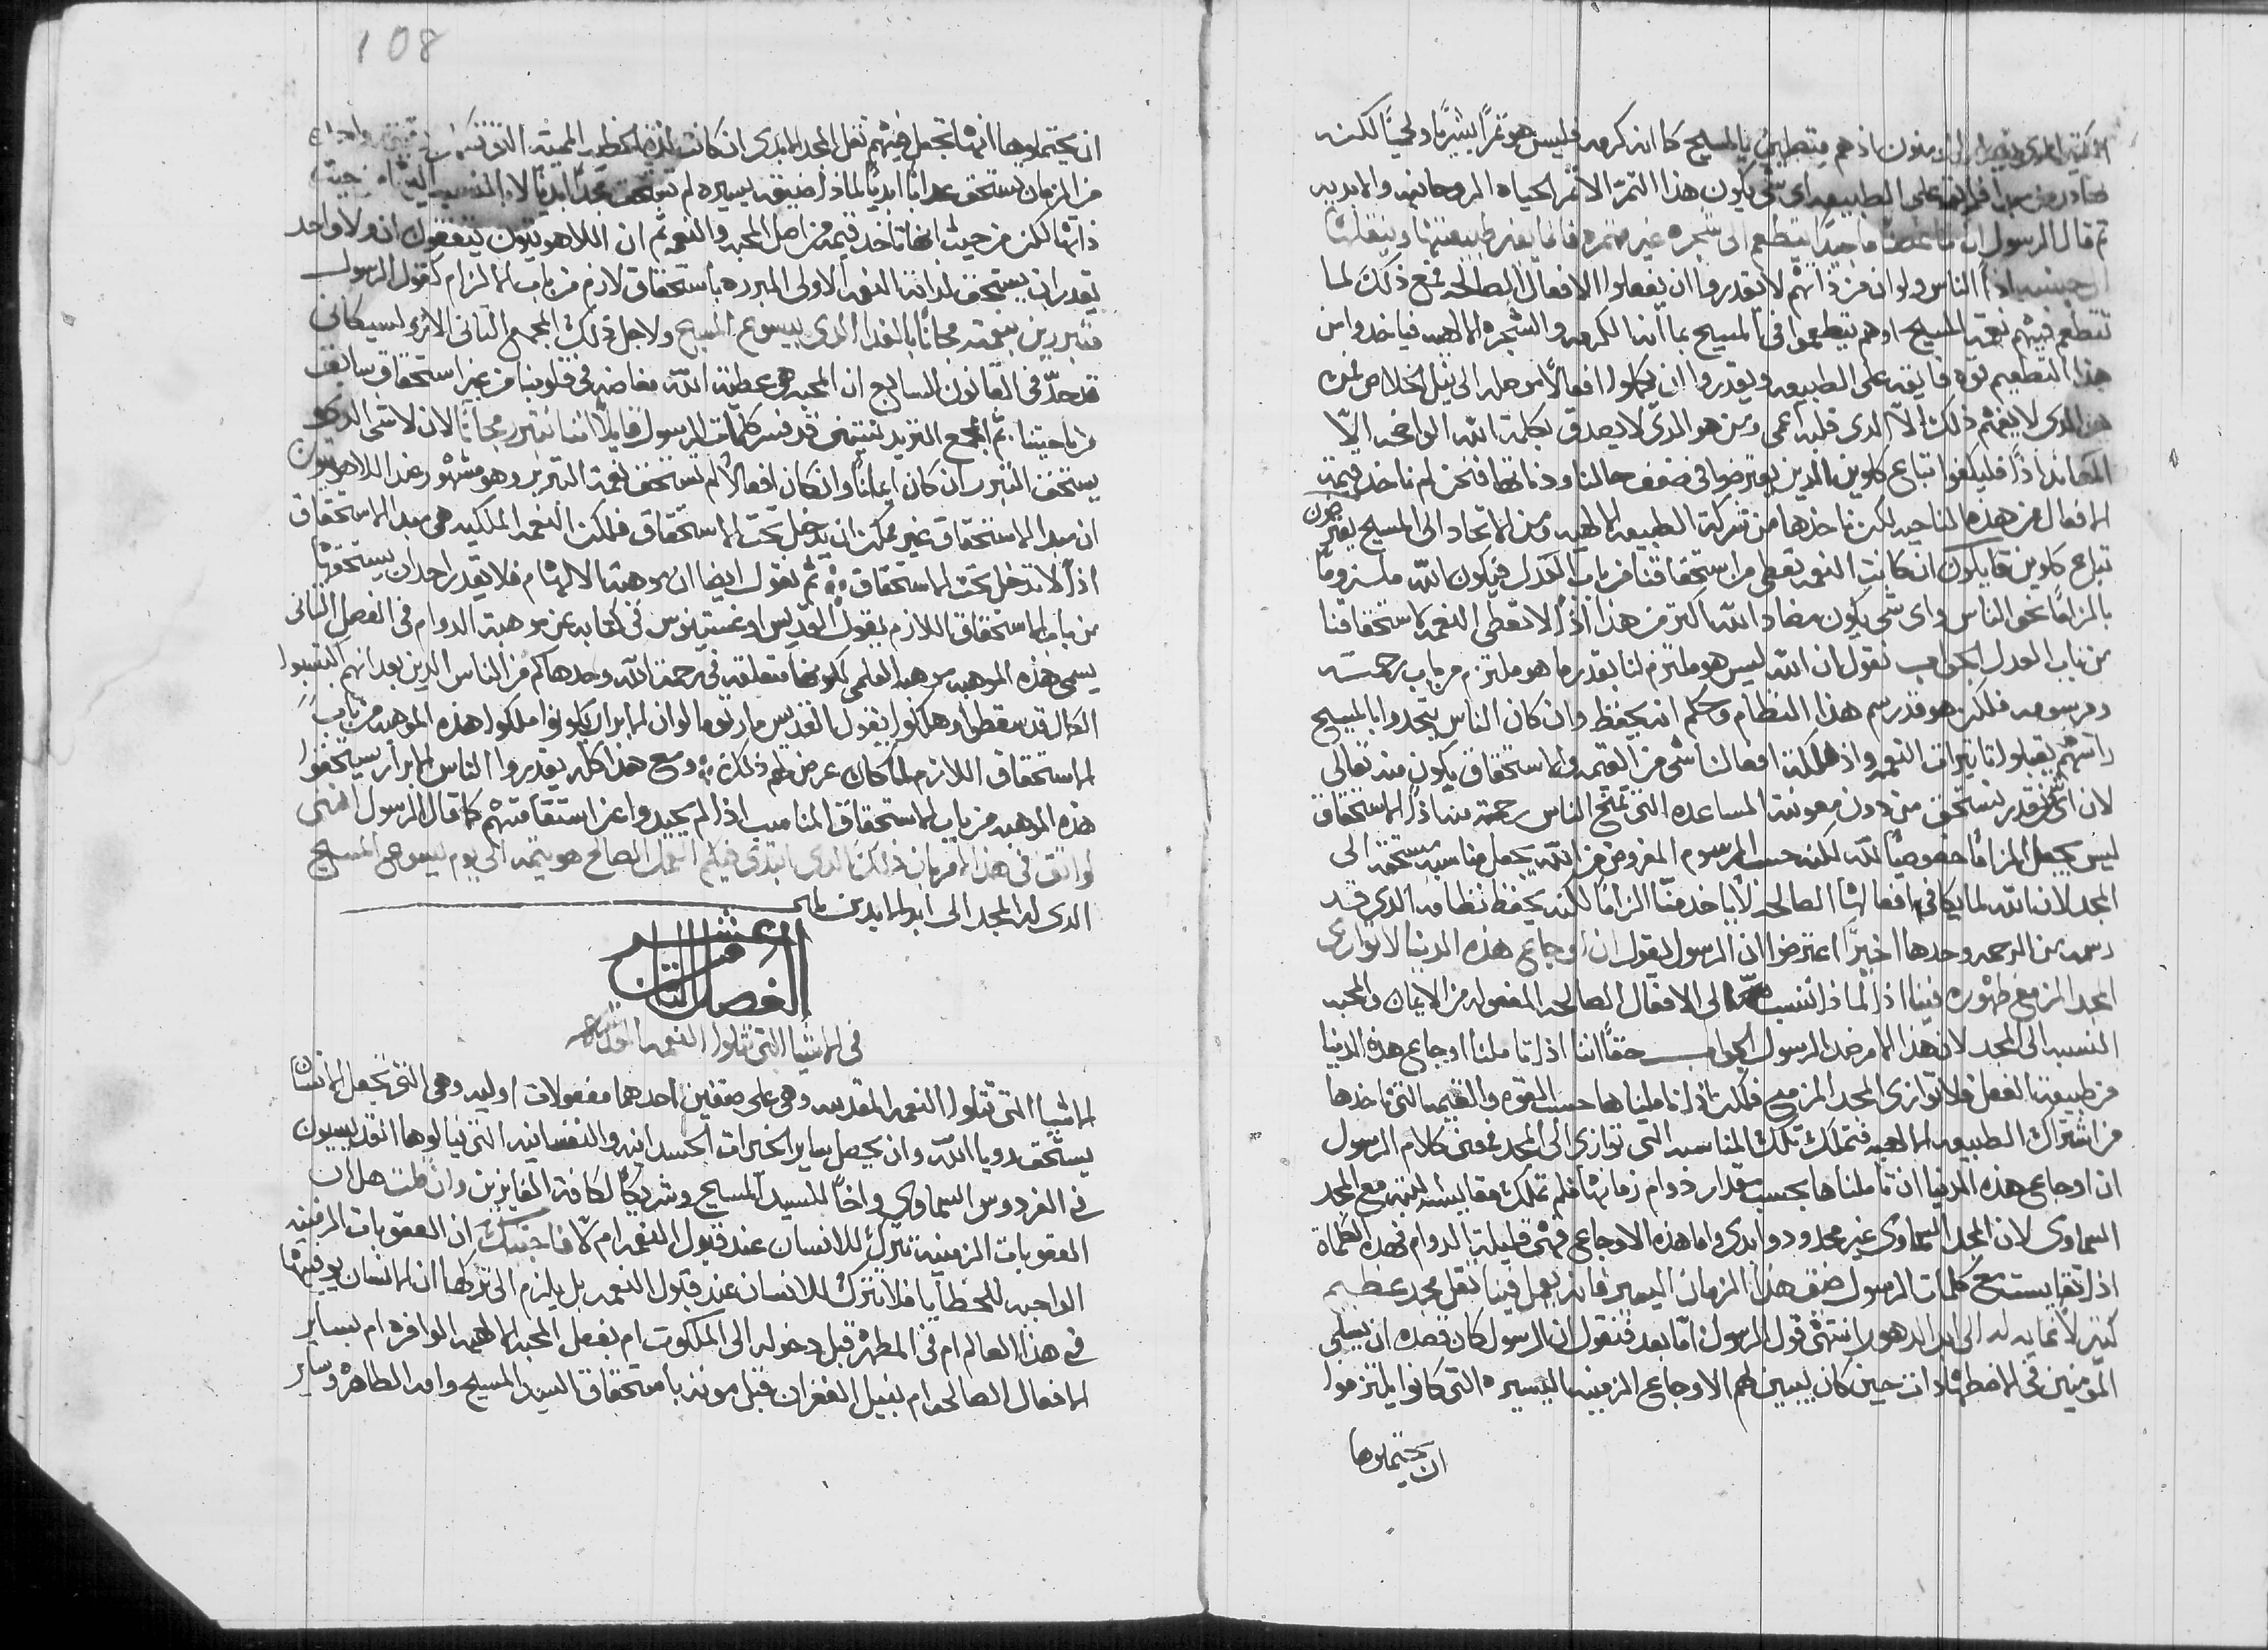 المومنون اذ هم متطعمين بالمسيح كما انه كرمه فليس هو تمرًا بشريًا ولحميًا لكنه
فايقه على الطبيعه اى شى يكون هذا التمر الا تمر الحياه الروحانيه والابديه
ثم قال الرسول ان غصنًا ما جيدًا يتطعم الى شجره غير مثمره فانما يغير طبيعتها وينقلها
اذًا الناس ولو ان من ذاتهم لا يقدروا ان يفعلوا الافعال الصالحه فمع ذلك لما
تتطعم فيهم نعمة المسيح او هم يتطعموا فى المسيح بما انه الكرمه والشجره الالهيه فياخدوا من
هذا التطعيم قوه فايقه على الطبيعه ويقدروا ان يكملوا افعالًا موصله الى نيل الخلاص فمن
هو الدى لا يفهم ذلك الّا الدى قلبه اعمى ومن هو الدى لا يصدق لكلمة الله الواضحه الّا
المعاند اذًا فليكفوا تباع كلوين الدين يعترضوا فى ضعف حالنا وذاتنا فنحن لم ناخد قيمة
الافعال من هذه الناحيه لكن ناخدها من شركة الطبيعه الالهيه ومن الاتحاد الى المسيح يعترضون
تباع كلوين قايلون ان كانت النعمه تعطى من استحقاقنا من باب العدل فيكون الله ملزومًا
بالزامًا نحو الناس واى شى يكون مضاد الله اكتر من هذا اذًا لا تعطى النعمه لاستحقاقنا
من باب العدل الجواب نقول ان الله ليس هو ملتزم لنا بقدر ما هو ملتزم من باب رحمته
ومرسومه فلكن هو قد رسم هذا النظام وحكم انه يحفظ وان كان الناس يتحدوا بالمسيح
راسهم يقبلوا تاتيرات النعمه واد هلكنه افعالنا شى من القيمه والاستحقاق يكون منه تعالى
لان اى شى نقدر نستحق من دون معونة المساعده التى تمنح الناس رحمة منه اذًا الاستحقاق
ليس يجعل الزامًا خصوصيًا لله لكنه حسب المرسوم المفروض من الله يجعل مناسبه مستحقه الى
المجد لان الله لما يكافى افعالها الصالحه لا ياخد منّا الزامًا لكنه يحفظ نظامه الدى قد
رسمه من الرحمه وحدها اخيرًا اعترضوا ان الرسول يقول ان اوجاع هذه الدنيا لا توازى
المجد المزمع ظهوره فينا اذًا لماذا تنسب الى الافعال الصالحه المفعوله من الايمان والمحبه
النسبه الى المجد لان هذا الامر ضد الرسول الجواب حقًا اننا اذا تاملنا اوجاع هذه الدنيا
من طبيعة الفعل فلا توازى المجد المزمع فلكن اذا تاملناها حسب القوه والقيمه التى ناخدها
من اشتراك الطبيعه الالهيه فتملك تلك المناسبه التى توازى الى المجد فمعنى كلام الرسول
ان اوجاع هذه الدنيا ان تاملناها بحسب مقدار دوام زمانها فلم تملك مقايسه البته مع المجد
السماوى لان المجد السماوى غير محدود وابدى واما هذه الاوجاع فهى قليلة الدوام فهذه الكلماة
اذا تقايست مع كلمات الرسول ضعف هذا الزمان اليسير فانه يعمل فينا تقل مجد عظيم
كتير لا نهايه له الى ابد الدهور انتهى قول الرسول امّا بعد فنقول ان الرسول كان قصده ان يسلى
المومنين فى الاضطهادات حين كان يبين لهم الاوجاع الزمنيه اليسيره التى كانوا يلتزموا
ان يحتملوها
108
ان يحتملوها انها تجعل فيهم تقل المجد الابدى ان كانت لذة الخطيه المميته التى
من الزمان يستحق عدابًا ابديًا لماذا ضيقه يسيره لم تستحق مجدًا ابديًا لا
ذاتها لكن من حيث انها تاخد قيمه من اصل المحبه والنعمه ثم ان اللاهوتيون يتفقون انه ولا واحد
يقدر ان يستحق لداته النعمه الاولى المبرره باستحقاق لازم من باب الالزام كقول الرسول
متبررين بنعمته مجانًا بالفدا الدى بيسوع المسيح ولاجل ذلك المجمع التانى الاتروليسيكانى
قد حدّ فى القانون السابع ان المحبه هى عطية الله مفاضه فى قلوبنا من غير استحقاق سابق
من ناحيتنا ثم المجمع التريدنتينى قد فسر كلمات الرسول قايلًا اننا نتبرر مجانًا لان لا شى الدى
يستحق التبرر ان كان ايمانًا وان كان افعالًا لم تستحق نعمة التبرير وهو مشهور عند اللاهوتيون
ان مبدا الاستحقاق غير ممكن ان يدخل تحت الاستحقاق فلكن النعمه الملكيه هى مبدا الاستحقاق
اذًا لا تدخل تحت الاستحقاق ثم نقول ايضا ان موهبة الالهام فلا يقدر احد ان يستحقها
من باب الاستحقاق اللازم يقول القديس اوغستينوس فى كتابه عن موهبة الدوام فى الفصل التانى
يسمى هذه الموهبه موهبه العظمى لكونها متعلقه فى رحمة الله وحدها كم من الناس الدين بعد انهم اكتسبوا
الكمال قد سقطوا وهلكوا يقول القديس مار توما لو ان الابرار يكونوا ملكوا هذه الموهبه من باب
الاستحقاق اللازم لما كان عرض لهم ذلك ومع هذا كله يقدروا الناس الابرار يستحقوا
هذه الموهبه من باب الاستحقاق المناسب اذ الم يحيدوا عن استقامتهم كما قال الرسول اننى
لواثق فى هذا القربان ذلك الدى ابتدى فيكم العمل الصالح هو يتمه الى يوم يسوع المسيح
الدى له المجد الى ابد الابدين امين
الفصل التامن عشر
فى الاشيا التى تتلوا النعمه المقدسه
الاشيا التى تتلوا النعمه المقدسه وهى على صنفين احدهما مفعولات اوليه وهى التى تجعل الانسان
يستحق رويا الله وان يحصل ساير الخيرات الجسدانيه والنفسانيه التى نيالوها القديسيون
فى الفردوس السماوى واخًا للسيد المسيح وشريكًا لكافة الفايزين وان قلت هل ان
العقوبات الزمنيه تترك للانسان عند قبول النعمه ام لّا فاجبتك ان العقوبات الزمنيه
الواجبه للخطايا فلا تترك للانسان عند قبول النعمه بل يلزم الى تركها ان الانسان يوفيها
فى هذا العالم ام فى المطهر قبل دخوله الى الملكوت ام بفعل المحبه الالهيه الوافره ام بساير
الافعال الصالحه ام بنيل الغفران قبل موته باستحقاق السيد المسيح وامه الطاهره وساير